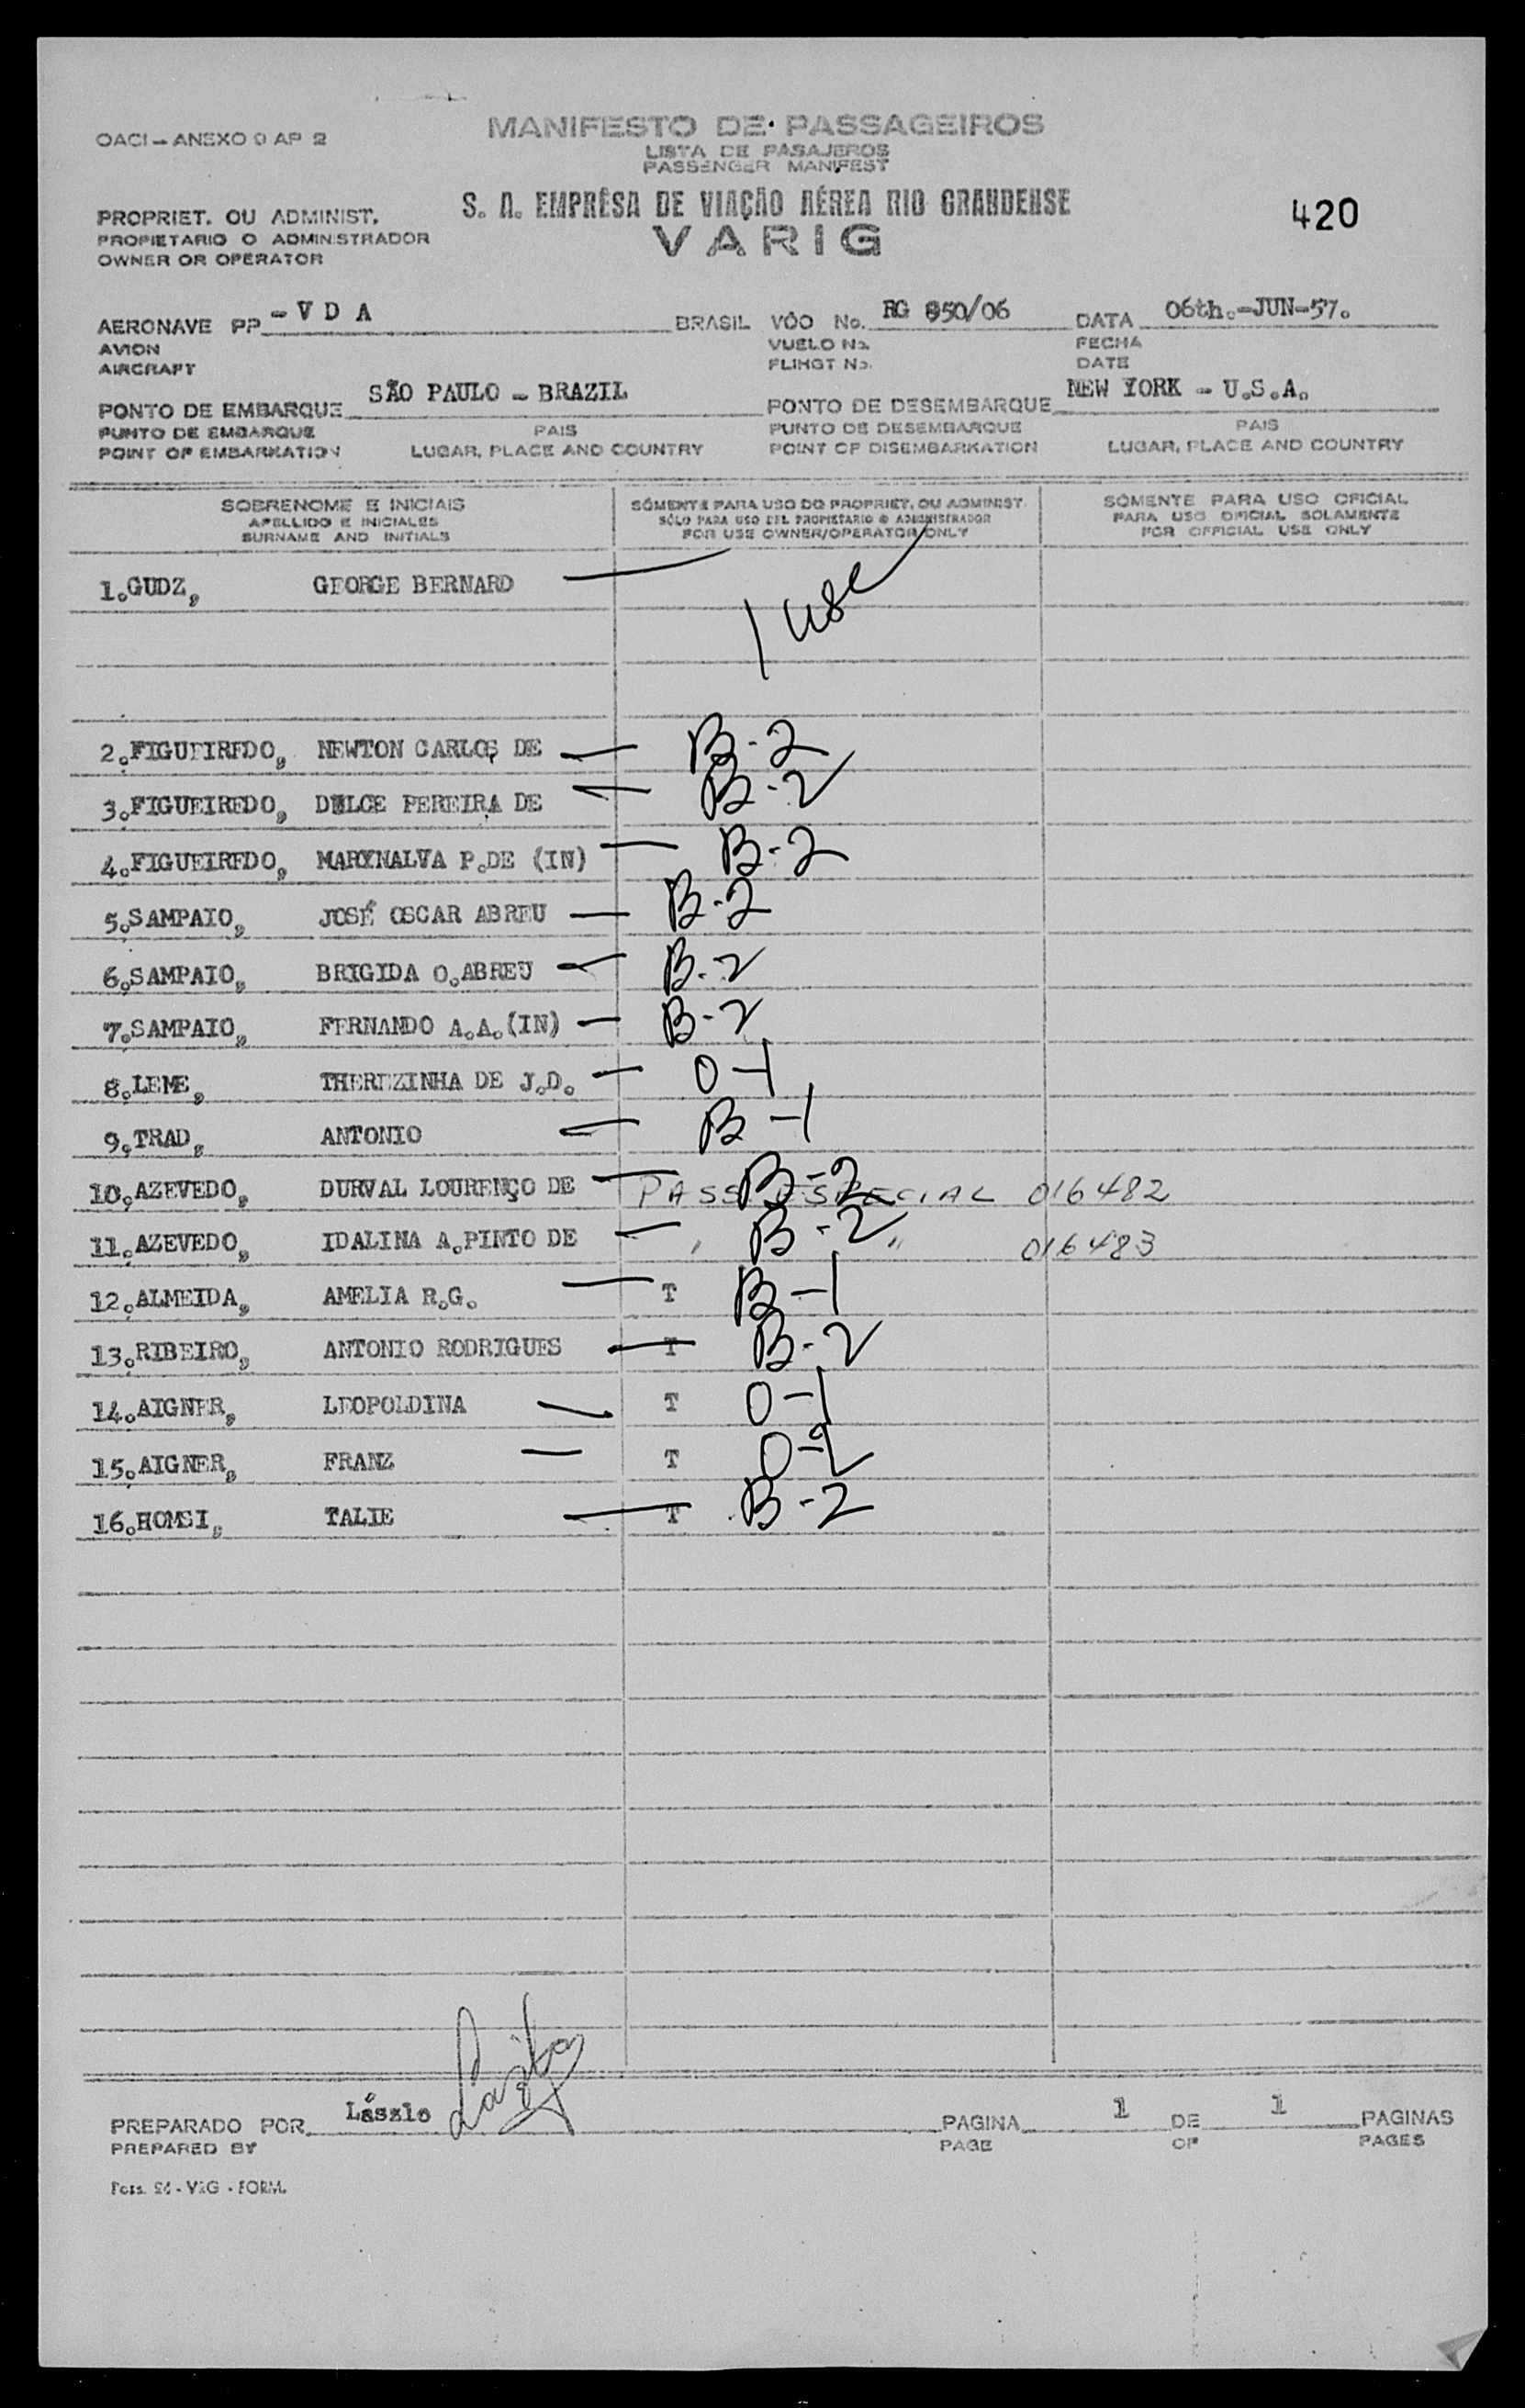 MANIFESTO DE PASSAGEIROS
OACI - ANEXO 9 AP 2
LISTA DE PASAJEROS
PASSENGER MANIFEST
S. A. EMPRÊSA DE VIAÇÃO AÉREA RIO GRANDENSE
420
PROPRIET. OU ADMINIST.
PROPIETARIO O ADMINISTRADOR
VARIG
OWNER OR OPERATOR
AERONAVE PP - V D A BRASIL VÔO No. RG 850/06 DATA 06th.-JUN-57.
AVION VUELO No. FECHA
AIRCRAFT FLIHGT No. DATE
PONTO DE EMBARQUE SÃO PAULO - BRAZIL PONTO DE DESEMBARQUE NEW YORK - U.S.A.
PUNTO DE EMBARQUE PAIS PUNTO DE DESEMBARQUE PAIS
POINT OF EMBARKATION LUGAR, PLACE AND COUNTRY POINT OF DISEMBARKATION LUGAR, PLACE AND COUNTRY
SOBRENOME E INICIAIS SÓMENTE PARA USO DO PROPRIET. OU ADMINIST. SÓMENTE PARA USO OFICIAL
APELLIDO E INICIALES SÓLO PARA USO DEL PROPIETARIO O ADMINISTRADOR PARA USO OFICIAL SOLAMENTE
SURNAME AND INITIALS FOR USE OWNER/OPERATOR ONLY FOR OFFICIAL USE ONLY
1. GUDZ, GEORGE BERNARD
1 usc
2. FIGUEIREDO, NEWTON CARLOS DE B-2
3. FIGUEIREDO, DULCE PEREIRA DE B-2
4. FIGUEIREDO, MARYNALVA P.DE (IN) B-2
5. SAMPAIO, JOSÉ OSCAR ABREU B-2
6. SAMPAIO, BRIGIDA O. ABREU B-2
7. SAMPAIO, FERNANDO A.A.(IN) B-2
8. LEME, THEREZINHA DE J.D. 0-1
9. TRAD, ANTONIO B-1
10. AZEVEDO, DURVAL LOURENÇO DE PASS ESPECIAL B-2 016482
11. AZEVEDO, IDALINA A.PINTO DE " B-2 " 016483
12. ALMEIDA, AMELIA R.G. T B-1
13. RIBEIRO, ANTONIO RODRIGUES T B-2
14. AIGNER, LEOPOLDINA T 0-1
15. AIGNER, FRANZ T 0-2
16. HOMSI, TALIE T B-2
PREPARADO POR László PAGINA 1 DE 1 PAGINAS
PREPARED BY PAGE OF PAGES